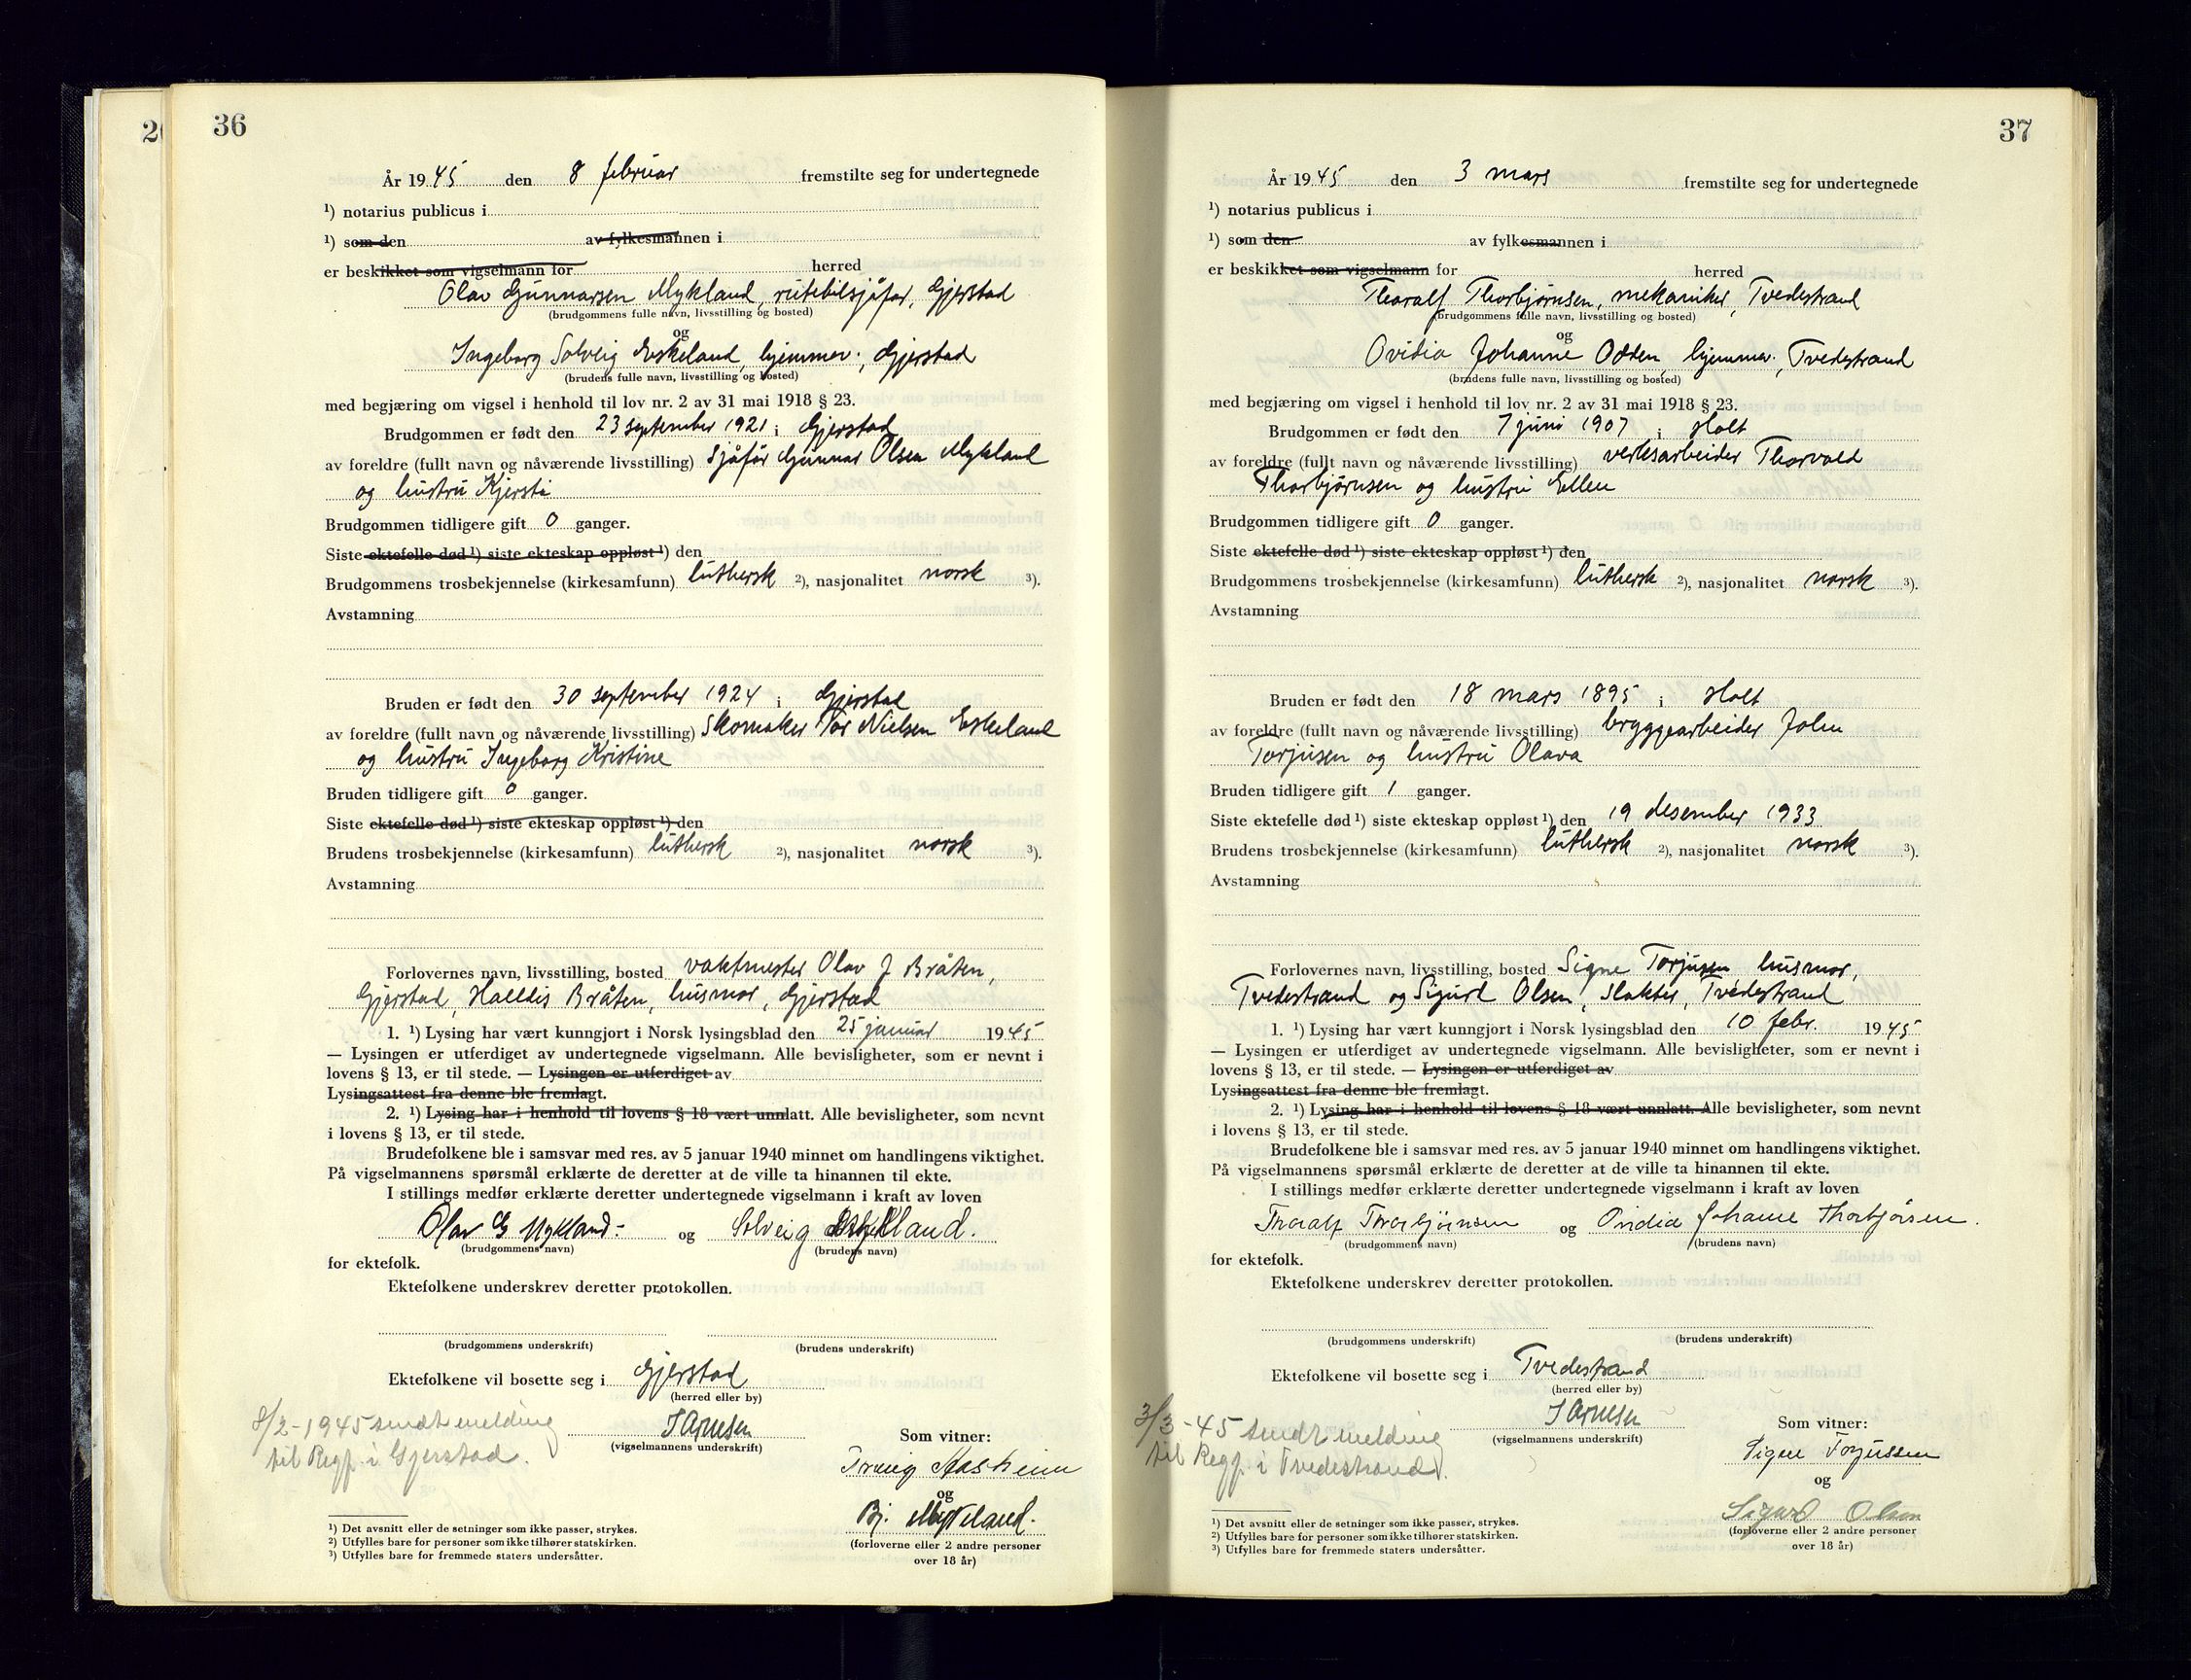 2
36
År 1945 den 8 februar fremstilte seg for undertegnede
¹) notarius publicus i
¹) som den av fylkesmannen i
er beskikket som vigselmann for herred
Olav Gunnarsen Mykland, rutebilsjåfør, Gjerstad
(brudgommens fulle navn, livsstilling og bosted)
og
Ingeborg Solveig Eskeland, hjemmev., Gjerstad
(brudens fulle navn, livsstilling og bosted)
med begjæring om vigsel i henhold til lov nr. 2 av 31 mai 1918 § 23.
Brudgommen er født den 23 september 1921 i Gjerstad
av foreldre (fullt navn og nåværende livsstilling) Sjåfør Gunnar Olsen Mykland
og hustru Kjersti
Brudgommen tidligere gift 0 ganger.
Siste ektefelle død ¹) siste ekteskap oppløst ¹) den
Brudgommens trosbekjennelse (kirkesamfunn) luthersk ²), nasjonalitet norsk ³).
Avstamning
Bruden er født den 30 september 1924 i Gjerstad
av foreldre (fullt navn og nåværende livsstilling) Skomaker Tor Nielsen Eskeland
og hustru Ingeborg Kristine
Bruden tidligere gift 0 ganger.
Siste ektefelle død ¹) siste ekteskap oppløst ¹) den
Brudens trosbekjennelse (kirkesamfunn) luthersk ²), nasjonalitet norsk ³).
Avstamning
Forlovernes navn, livsstilling, bosted vaktmester Olav J Bråten,
Gjerstad, Halldis Bråten, husmor, Gjerstad
1. ¹) Lysing har vært kunngjort i Norsk lysingsblad den 25 januar 1945
— Lysingen er utferdiget av undertegnede vigselmann. Alle bevisligheter, som er nevnt i
lovens § 13, er til stede. — Lysingen er utferdiget av
Lysingsattest fra denne ble fremlagt.
2. ¹) Lysing har i henhold til lovens § 18 vært unnlatt. Alle bevisligheter, som nevnt
i lovens § 13, er til stede.
Brudefolkene ble i samsvar med res. av 5 januar 1940 minnet om handlingens viktighet.
På vigselmannens spørsmål erklærte de deretter at de ville ta hinannen til ekte.
I stillings medfør erklærte deretter undertegnede vigselmann i kraft av loven
Olav G Mykland og Solveig Eskeland.
(brudgommens navn) (brudens navn)
for ektefolk.
Ektefolkene underskrev deretter protokollen.
(brudgommens underskrift) (brudens underskrift)
Ektefolkene vil bosette seg i Gjerstad
(herred eller by)
8/2-1945 sendt melding
til Regf. i Gjerstad.
J Arnesen
(vigselmannens underskrift)
Som vitner:
og
Bj. Mykland.
(forloverne eller 2 andre personer
over 18 år)
¹) Det avsnitt eller de setninger som ikke passer, strykes.
²) Utfylles bare for personer som ikke tilhører statskirken.
³) Utfylles bare for fremmede staters undersåtter.
37
År 1945 den 3 mars fremstilte seg for undertegnede
¹) notarius publicus i
¹) som den av fylkesmannen i
er beskikket som vigselmann for herred
Thoralf Thorbjørnsen, mekaniker, Tvedestrand
(brudgommens fulle navn, livsstilling og bosted)
og
Ovidia Johanne Odden, hjemmev., Tvedestrand
(brudens fulle navn, livsstilling og bosted)
med begjæring om vigsel i henhold til lov nr. 2 av 31 mai 1918 § 23.
Brudgommen er født den 7 juni 1907 i Holt
av foreldre (fullt navn og nåværende livsstilling) verksarbeider Thorvald
Thorbjørnsen og hustru Ellen
Brudgommen tidligere gift 0 ganger.
Siste ektefelle død ¹) siste ekteskap oppløst ¹) den
Brudgommens trosbekjennelse (kirkesamfunn) luthersk ²), nasjonalitet norsk ³).
Avstamning
Bruden er født den 18 mars 1895 i Holt
av foreldre (fullt navn og nåværende livsstilling) bryggearbeider John
Torjusen og hustru Olava
Bruden tidligere gift 1 ganger.
Siste ektefelle død ¹) siste ekteskap oppløst ¹) den 19 desember 1933
Brudens trosbekjennelse (kirkesamfunn) luthersk ²), nasjonalitet norsk ³).
Avstamning
Forlovernes navn, livsstilling, bosted Signe Torjusen husmor,
Tvedestrand og Sigurd Olsen, slakter, Tvedestrand
1. ¹) Lysing har vært kunngjort i Norsk lysingsblad den 10 febr. 1945
— Lysingen er utferdiget av undertegnede vigselmann. Alle bevisligheter, som er nevnt i
lovens § 13, er til stede. — Lysingen er utferdiget av
Lysingsattest fra denne ble fremlagt.
2. ¹) Lysing har i henhold til lovens § 18 vært unnlatt. Alle bevisligheter, som nevnt
i lovens § 13, er til stede.
Brudefolkene ble i samsvar med res. av 5 januar 1940 minnet om handlingens viktighet.
På vigselmannens spørsmål erklærte de deretter at de ville ta hinannen til ekte.
I stillings medfør erklærte deretter undertegnede vigselmann i kraft av loven
Thoralf Thorbjörnsen og Ovidia Johanne Thorbjørsen.
(brudgommens navn) (brudens navn)
for ektefolk.
Ektefolkene underskrev deretter protokollen.
(brudgommens underskrift) (brudens underskrift)
Ektefolkene vil bosette seg i Tvedestrand
(herred eller by)
3/3-45 sendt melding
til Regf. i Tvedestrand.
J Arnesen
(vigselmannens underskrift)
Som vitner:
Signe Torjussen
og
Sigurd Olsen
(forloverne eller 2 andre personer
over 18 år)
¹) Det avsnitt eller de setninger som ikke passer, strykes.
²) Utfylles bare for personer som ikke tilhører statskirken.
³) Utfylles bare for fremmede staters undersåtter.